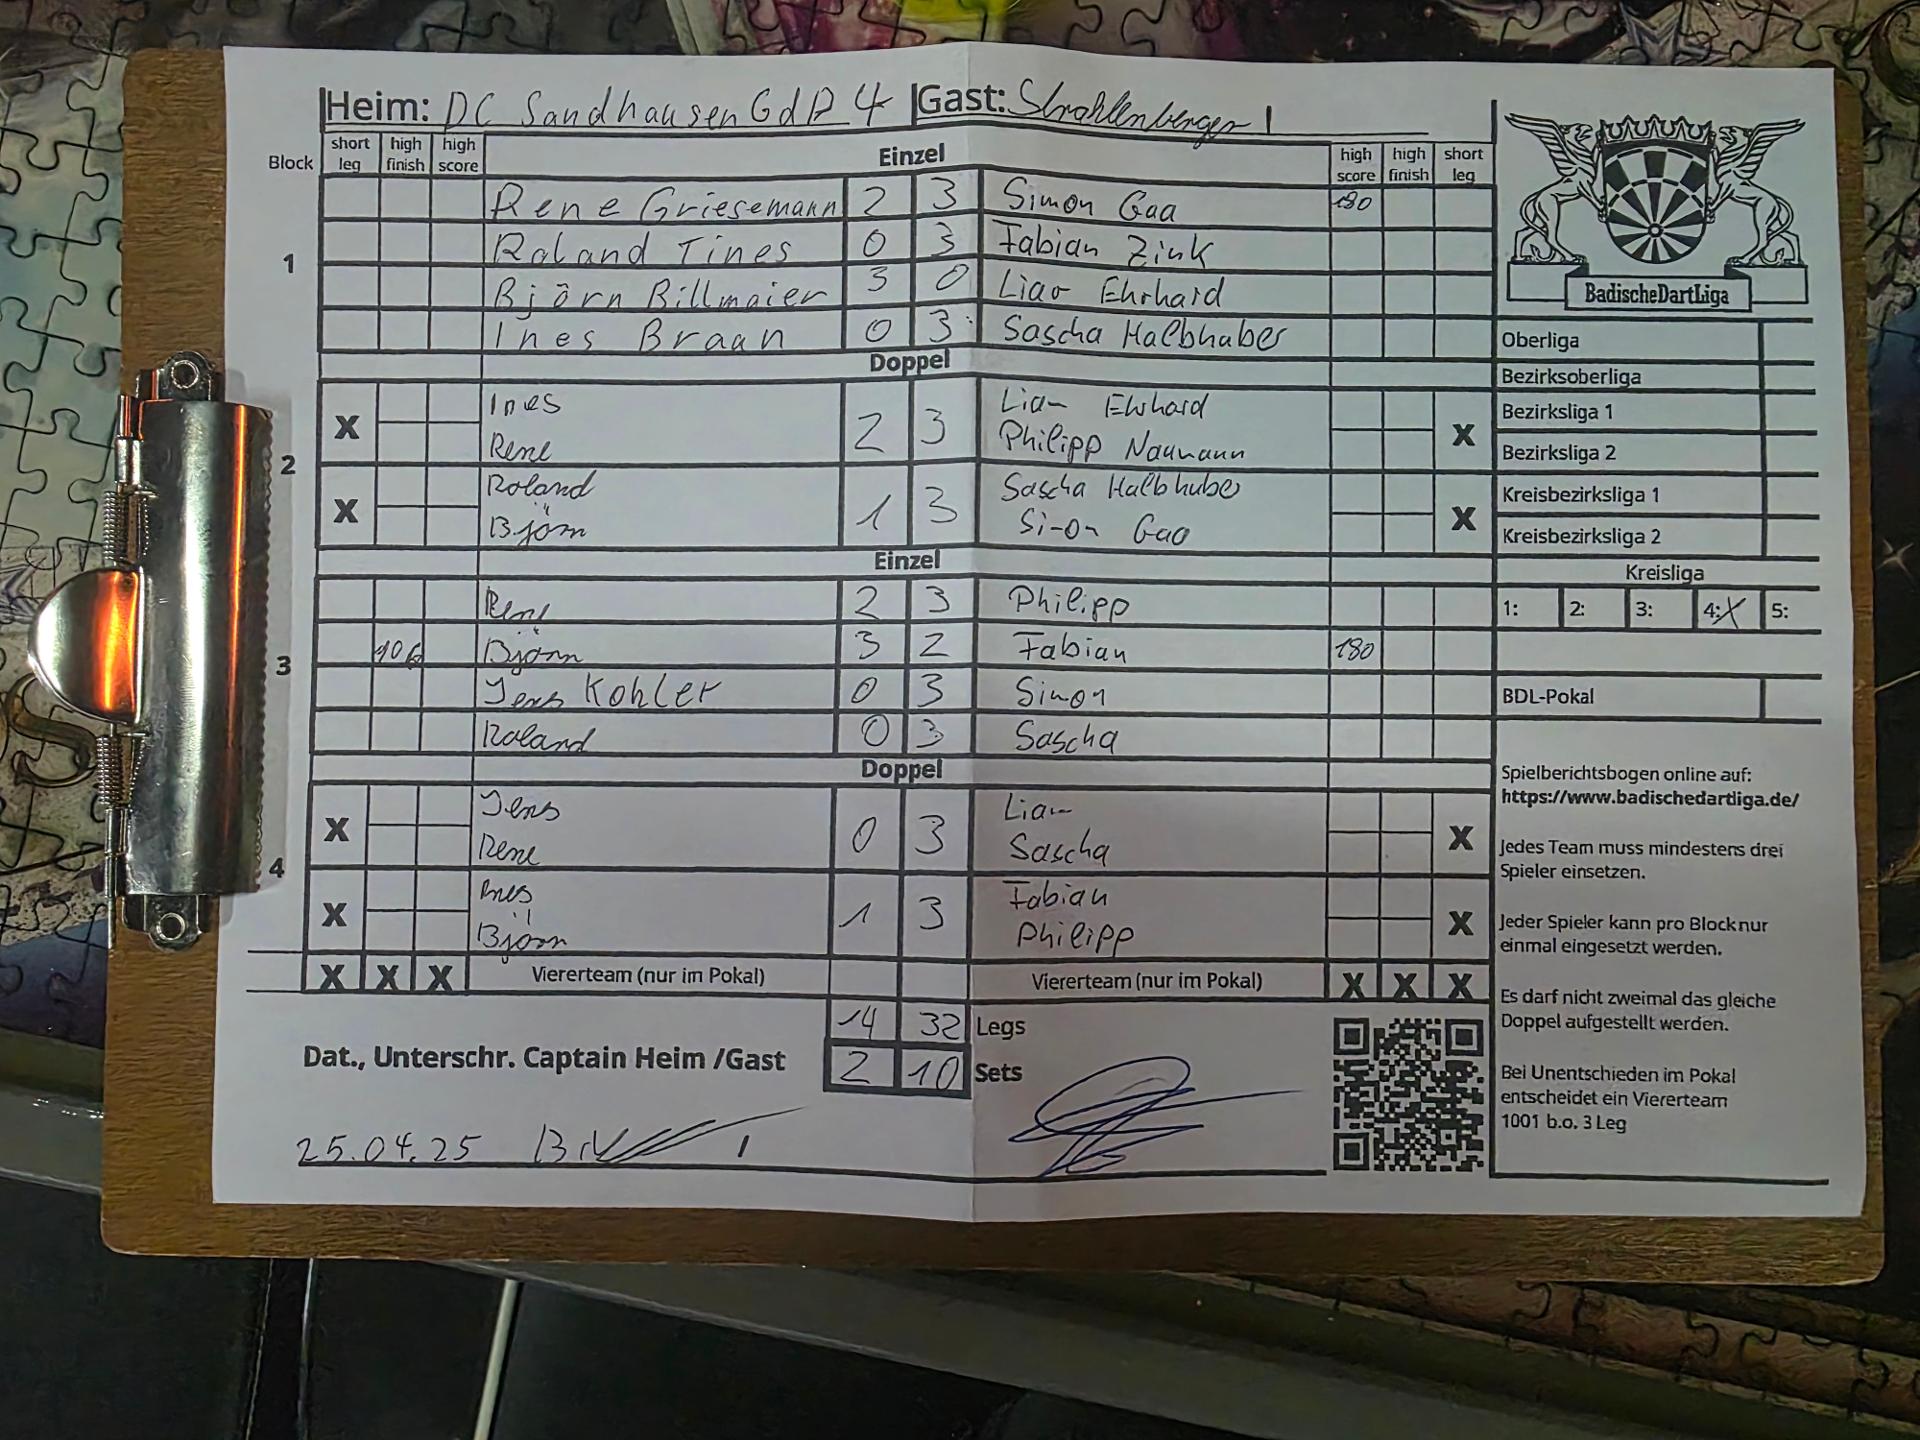 Heim: DC Sandhausen GdP 4 Gast: Strahlenberger 1
Block short leg high finish high score Einzel high score high finish short leg
Rene Griesemann 2 3 Simon Gaa 180
1 Roland Tines 0 3 Fabian Zink
Björn Billmaier 3 0 Liam Ehrhard
Ines Braun 0 3 Sascha Halbhuber
Doppel
X Ines 2 3 Liam Ehrhard X
Rene Philipp Naumann
2
X Roland 1 3 Sascha Halbhuber X
Björn Simon Gaa
Einzel
Rene 2 3 Philipp
3 106 Björn 3 2 Fabian 180
Jens Kohler 0 3 Simon
Roland 0 3 Sascha
Doppel
X Jens 0 3 Liam X
Rene Sascha
4
X Ines 1 3 Fabian X
Björn Philipp
X X X Viererteam (nur im Pokal) Viererteam (nur im Pokal) X X X
14 32 Legs
Dat., Unterschr. Captain Heim /Gast 2 10 Sets
25.04.25
BadischeDartLiga
Oberliga
Bezirksoberliga
Bezirksliga 1
Bezirksliga 2
Kreisbezirksliga 1
Kreisbezirksliga 2
Kreisliga
1: 2: 3: 4: X 5:
BDL-Pokal
Spielberichtsbogen online auf:
https://www.badischedartliga.de/
Jedes Team muss mindestens drei
Spieler einsetzen.
Jeder Spieler kann pro Block nur
einmal eingesetzt werden.
Es darf nicht zweimal das gleiche
Doppel aufgestellt werden.
Bei Unentschieden im Pokal
entscheidet ein Viererteam
1001 b.o. 3 Leg